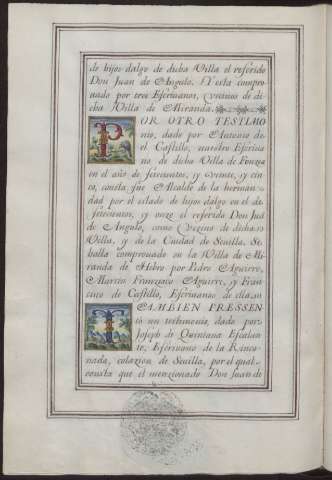 de hijos dalgo de dicha Villa el referido
Don Juan de Angulo. Y esta compro-
uado por tres Escriuanos, y vecinos de di-
cha Villa de Miranda.
POR OTRO TESTIMO
nio, dado por Antonio de
el Castillo, nuestro Escriua
no de dicha Villa de
en el año de setecientos, y veynte, y cin
co, consta fue Alcalde de la herman-
dad por el estado de hijos dalgo en el de
setecientos, y onze el referido Don Juā
de Angulo, como vezino de dicha
Villa, y de la Ciudad de Seuilla. Se
halla comprouado en la Villa de Mi-
randa de Hebro por Pedro Aguirre,
Martin Franzisco Aguirre, y Fran
cisco de Castillo, Escriuanos de ella.
TAMBIEN PRESSEN
tó un testimonio, dado por
Joseph de Quintana Escalan
te, Escriuano de la Rinco
nada, colazion de Seuilla, por el qual
consta que el menzionado Don Juan de